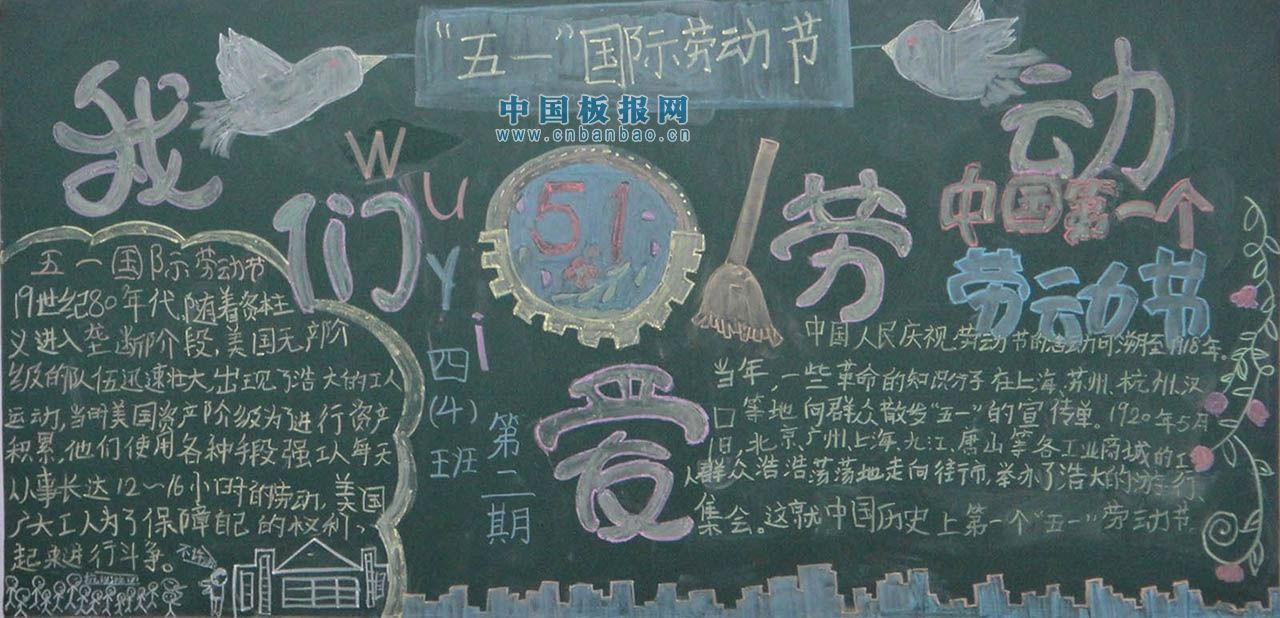 “五一”国际劳动节
中国板报网
www.cnbanbao.cn
我们爱劳动
wuyi
51
四(4)班
第二期
五一国际劳动节
19世纪80年代,随着资本主
义进入垄断阶段,美国无产阶
级的队伍迅速壮大,出现了浩大的工人
运动,当时美国资产阶级为了进行资产
积累,他们使用各种手段强工人每天
从事长达12~16小时的劳动,美国
广大工人为了保障自己的权利、
起来进行斗争。
中国第一个
劳动节
中国人民庆祝劳动节的活动可溯至1918年。
当年,一些革命的知识分子在上海、苏州、杭州、汉
口等地向群众散步“五一”的宣传单。1920年5月
1日,北京、广州、上海、九江、唐山等各工业商城的工
人群众浩浩荡荡地走向街市,举办了浩大的游行、
集会。这就中国历史上第一个“五一”劳动节